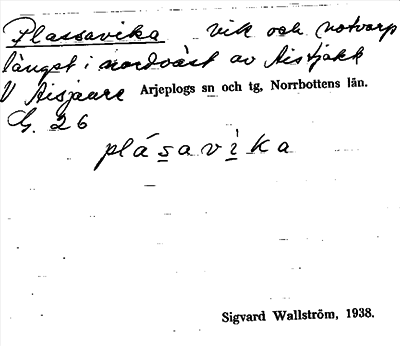 Plassavika vik och notvarp
längst i nordväst av Aistjakk
V Aisjaure Arjeplogs sn och tg, Norrbottens län.
G. 26
plásavika
Sigvard Wallström, 1938.